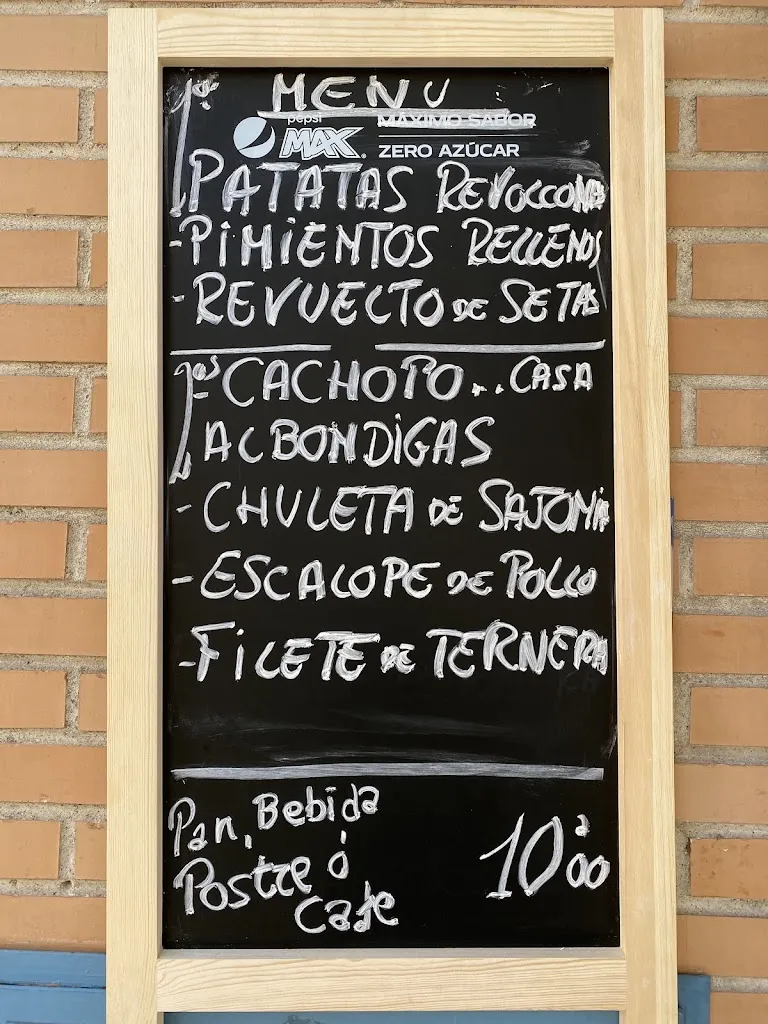 1ºs MENU
pepsi MAX. MÁXIMO SABOR
ZERO AZÚCAR
PATATAS REVOLCONA
-PIMIENTOS RELLENOS
-REVUELTO DE SETAS
2ºs CACHOPO... CASA
ALBONDIGAS
-CHULETA DE SAJONIA
-ESCALOPE DE POLLO
-FILETE DE TERNERA
Pan, Bebida
Postre ó
Cafe
10'00